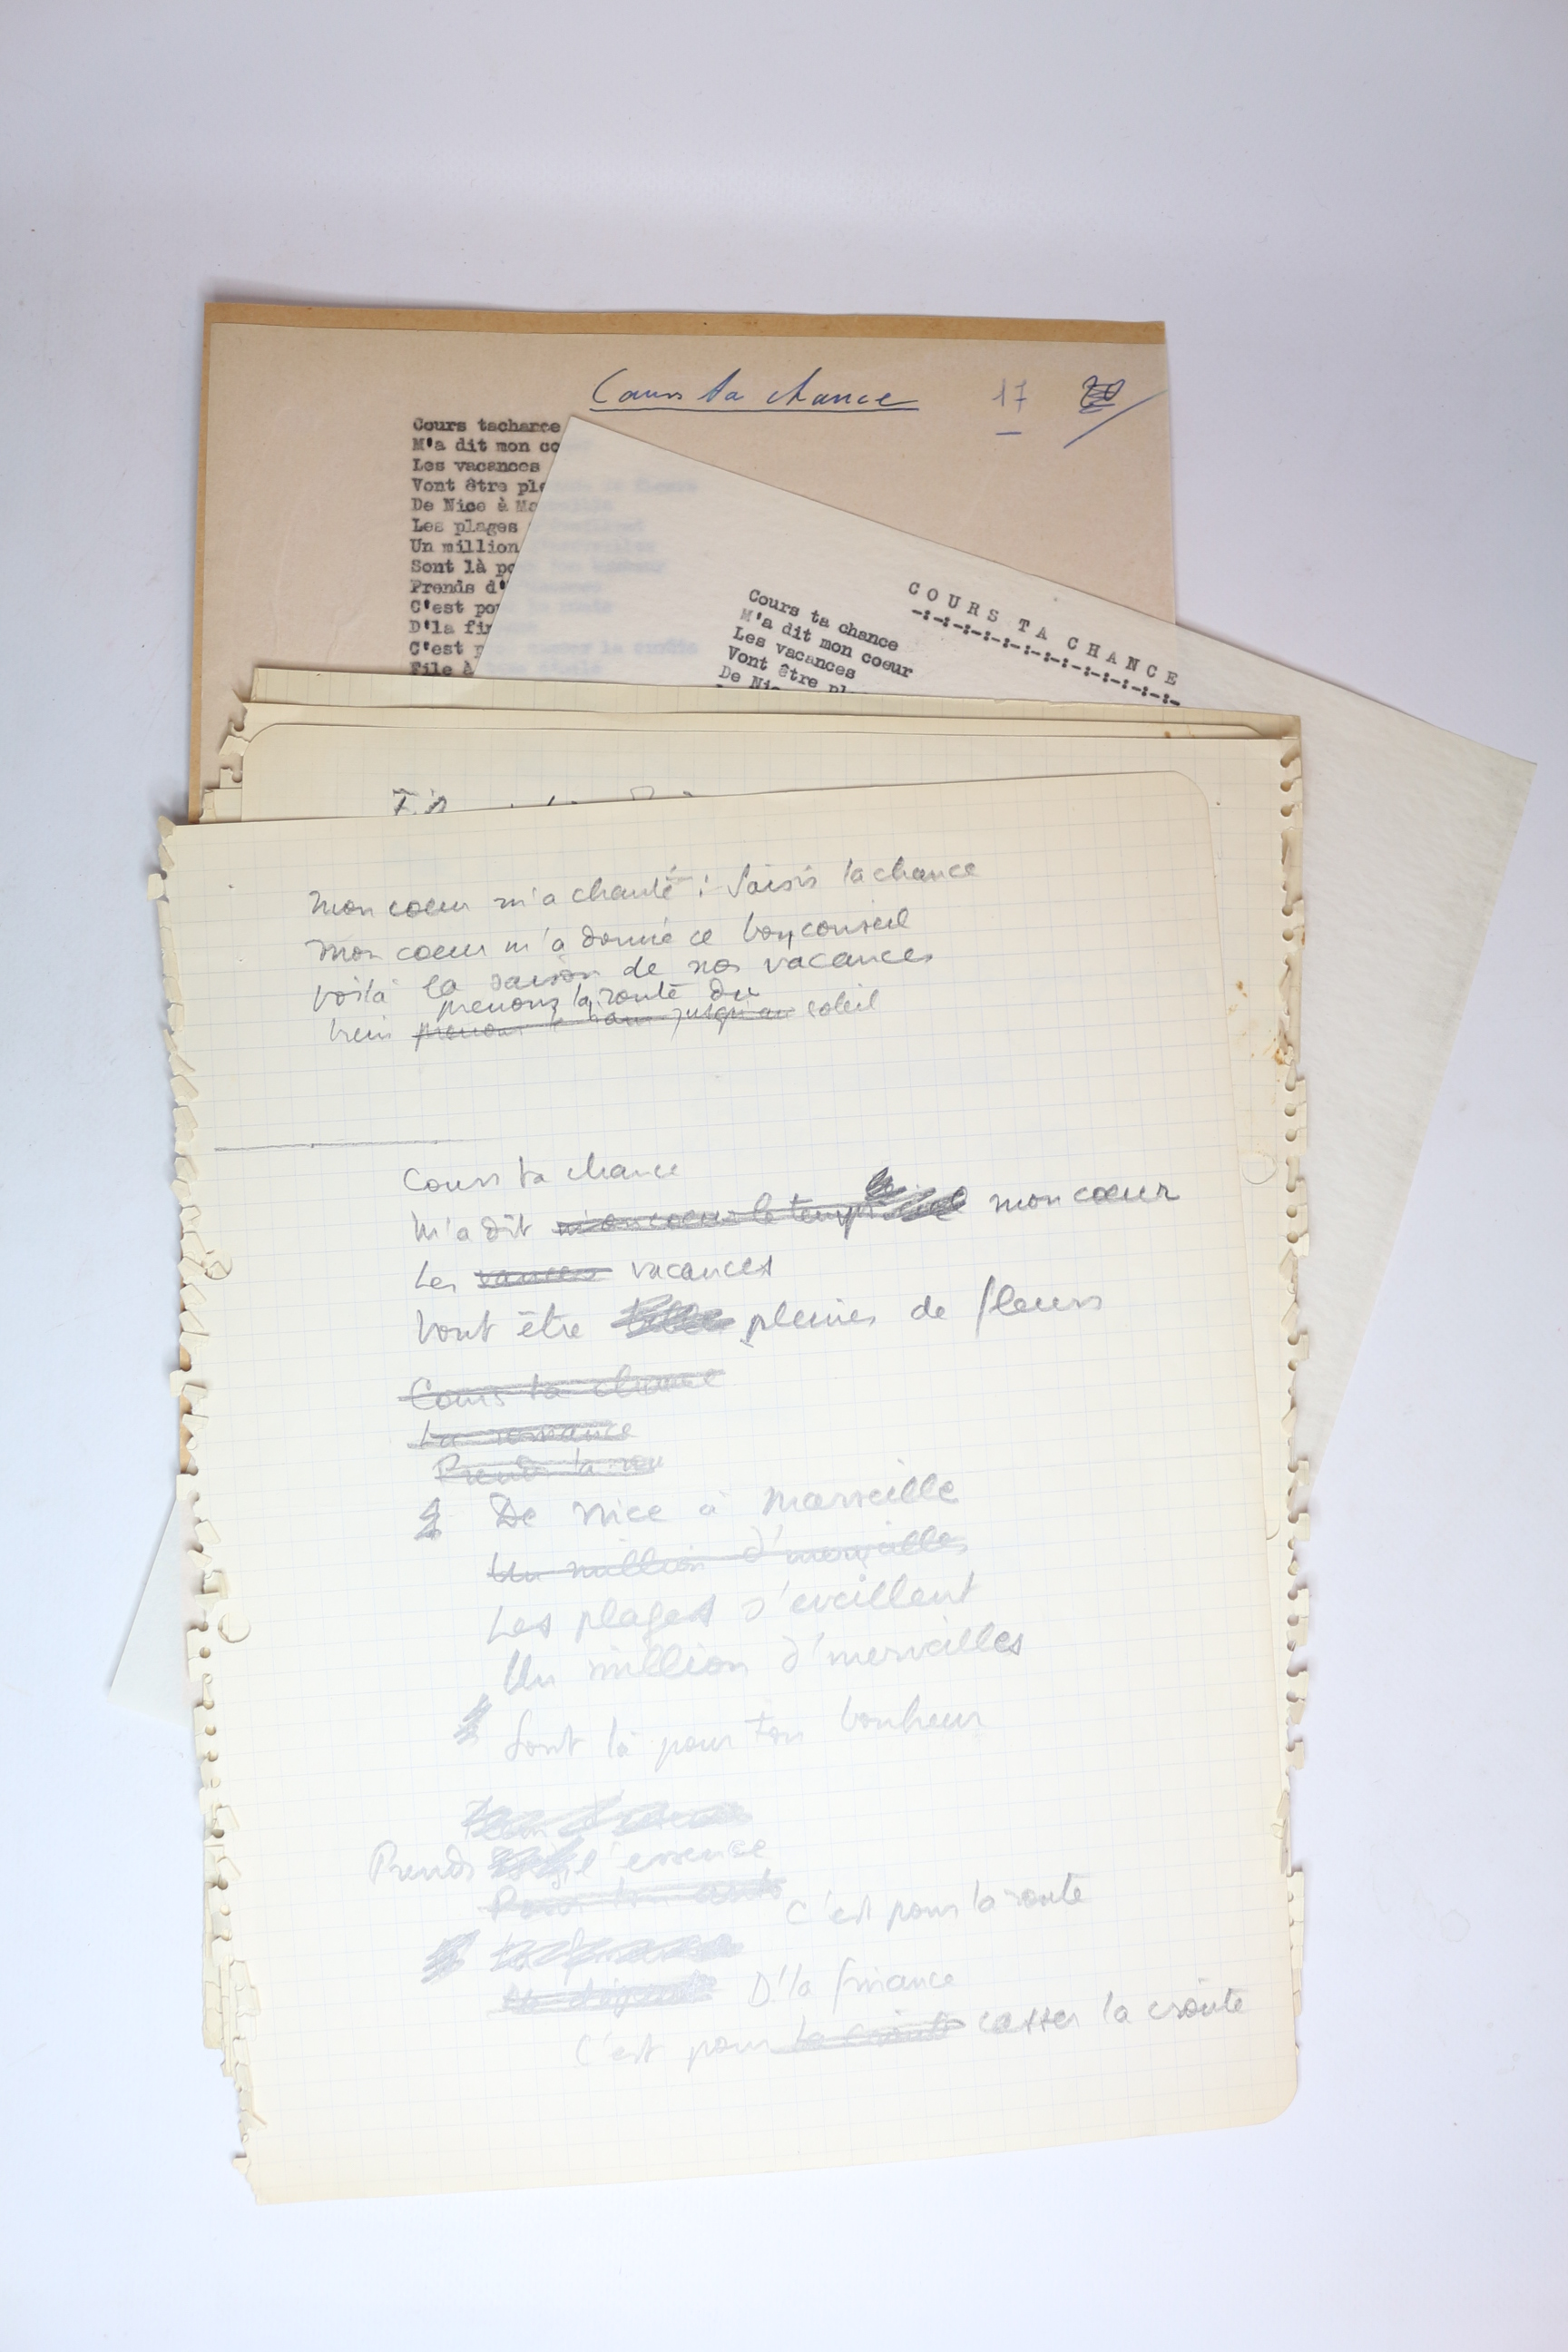 Cours ta chance 17
Cours tachance
M'a dit mon co
Les vacances
Vont être ple
De Nice à Ma
Les plages
Un million
Sont là po
Prends d'
C'est pou
D'la fin
C'est p
File à
COURS TA CHANCE
-:-:-:-:-:-:-:-:-:-:-:-:-:-:-
Cours ta chance
M'a dit mon coeur
Les vacances
Vont être pl
De Nic
Mon coeur m'a chanté : Saisis ta chance
Mon coeur m'a donné ce bon conseil
Voilà la saison de nos vacances
prenons la route du
soleil
Cours ta chance
M'a dit mon coeur le temps mon coeur
Les vances vacances
Vont être pleines de fleurs
Cours ta chance
La romance
Prends la rou
De Nice à Marseille
Un million d'merveilles
Les plages s'eveillent
Un million d'merveilles
Sont là pour ton bonheur
Prends l'essence
C'est pour la route
D'la finance
C'est pour la croute casser la croûte